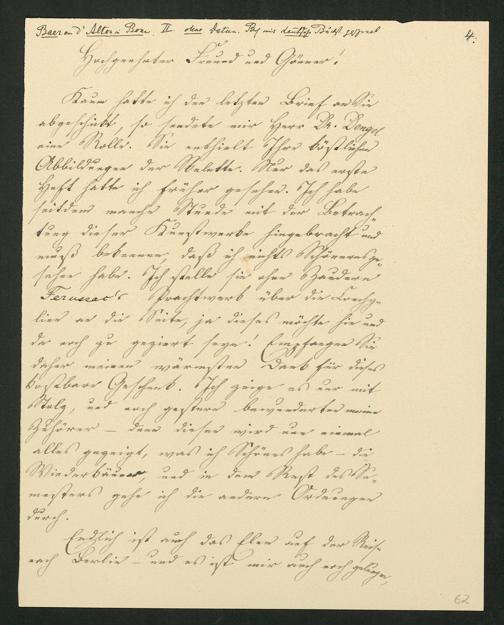 Baer an d'Alton in Bonn. II. ohne Datum. Pag. mit deutsch. Buchst.
4.
Hochgeehrter Freund und Gönner!
Kaum hatte ich den letzten Brief an Sie
abgeschickt, so sendete mir Herr Dr. Dengel
eine Rolle. Sie enthielt Ihre köstlichen
Abbildungen der Skelette. Nur das erste
Heft hatte ich früher gesehen. Ich habe
seitdem manche Stunde mit der Betrach-
tung dieser Kunstwerke hingebracht und
muß bekennen, daß ich nichts Schöneres ge-
sehen habe. Ich stelle sie ohne Zaudern
Ferussac's Prachtwerk über die Conchy-
lien an die Seite, ja dieses möchte hie und
da noch zu geziert seyn! Empfangen Sie
daher meinen wärmsten Dank für dieses
kostbare Geschenk. Ich zeige es nur mit
Stolz, und noch gestern bewunderten meine
Zuhörer – denn diesen wird nun einmal
alles gezeigt, was ich Schönes habe – die
Wiederkäuer, und in dem Rest des Se-
mesters gehe ich die andern Ordnungen
durch.
Endlich ist auch das Elen auf der Reise
nach Berlin – und es ist mir auch noch gelungen,
62